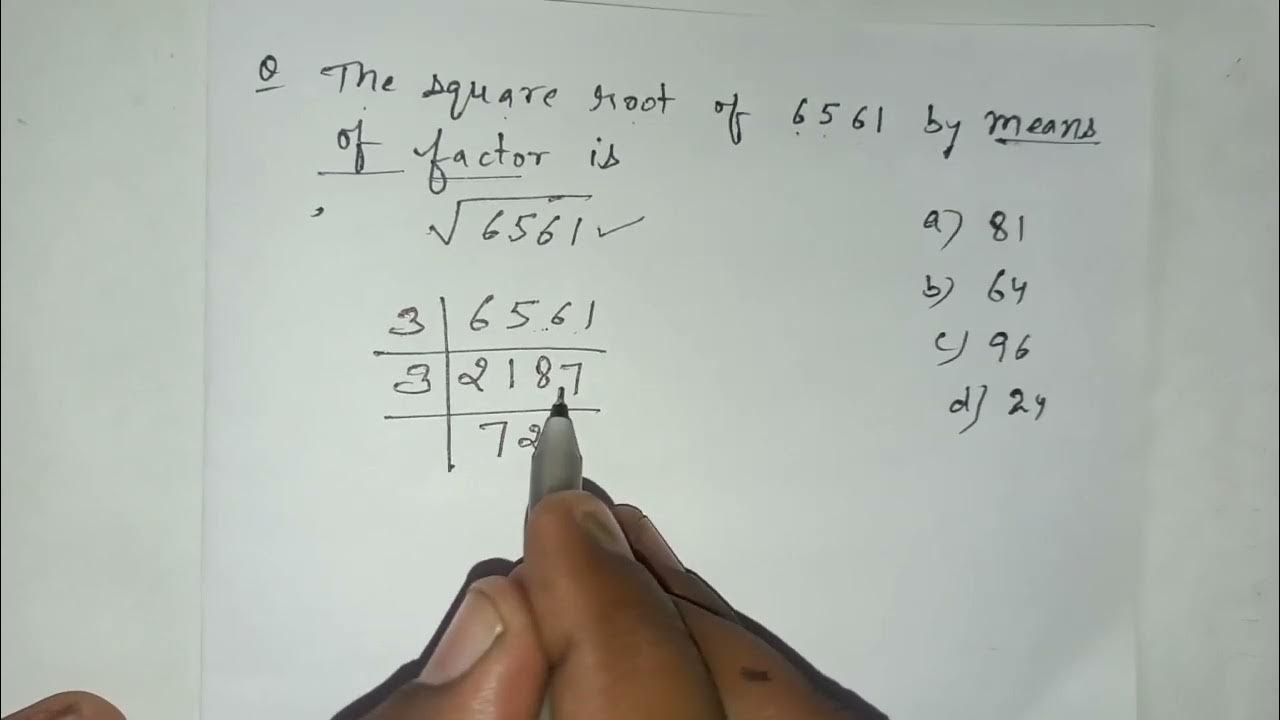 Q The square root of 6561 by means
of factor is
√6561 ✓
a) 81
b) 64
c) 96
d) 24
3 | 6561
3 | 2187
| 72